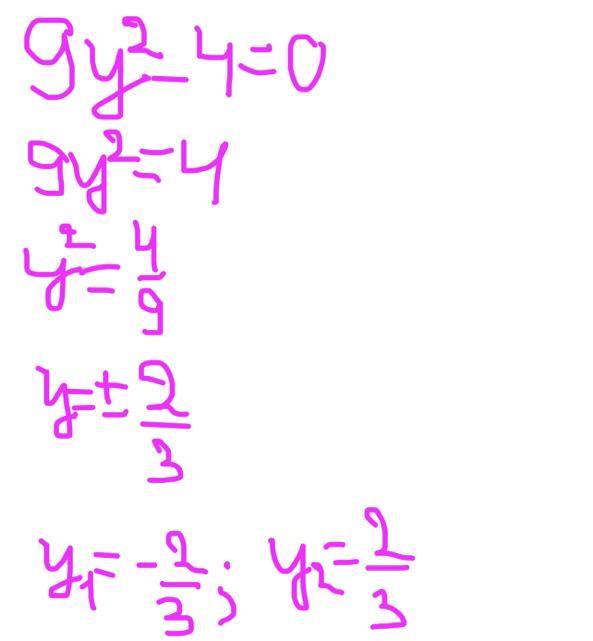 9y² - 4 = 0
9y² = 4
y² = 4/9
y = ± 2/3
y₁ = - 2/3 ; y₂ = 2/3